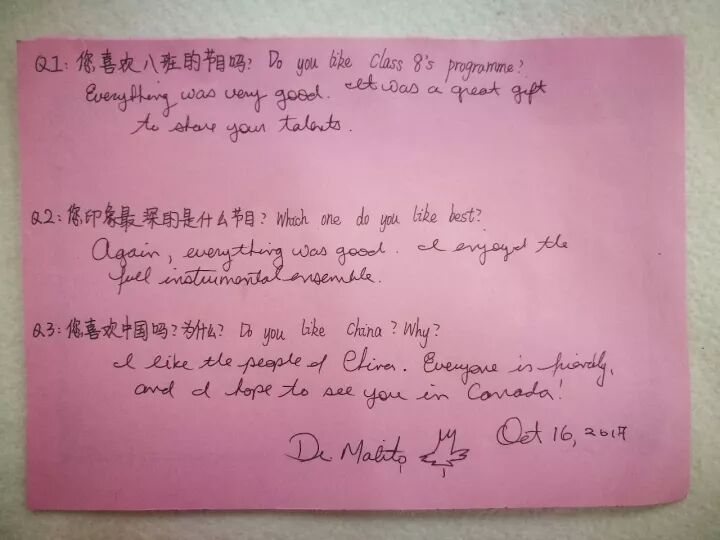 Q1: 您喜欢八班的节目吗? Do you like Class 8's programme?
Everything was very good. It was a great gift
to share your talents.
Q2: 您印象最深的是什么节目? Which one do you like best?
Again, everything was good. I enjoyed the
full instrumental ensemble.
Q3: 您喜欢中国吗? 为什么? Do you like China? Why?
I like the people of China. Everyone is friendly,
and I hope to see you in Canada!
Malito
Oct 16, 2017